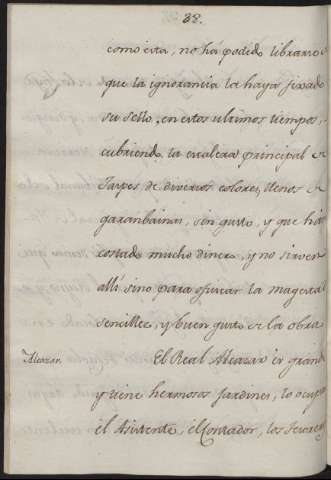 88.
como esta, no ha podido librarse
que la ignorancia la haya fixado
su sello, en estos ultimos tiempos,
cubriendo la escalera principal de
Jaspes, de diversos colores, llenos de
garanbainas, sin gusto, y que há
costado mucho dinero, y no sirven
allí sino para ofuscar la magestad
sencillez, y buen gusto de la obra
Alcazar. El Real Alcazar es grande
y tiene hermosos Jardines, lo ocupa
el Asistente, el Contador, los